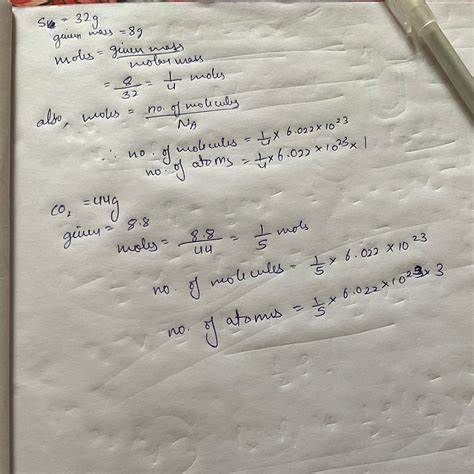 = 32g
given mass = 8g
moles = given mass / molar mass
= 8/32 = 1/4 moles
also, moles = no. of molecules / NA
∴ no. of molecules = 1/4 × 6.022 × 10^23
no. of atoms = 1/4 × 6.022 × 10^23 × 1
CO2 = 44g
given = 8.8
moles = 8.8/44 = 1/5 mols
no. of molecules = 1/5 × 6.022 × 10^23
no. of atoms = 1/5 × 6.022 × 10^23 × 3